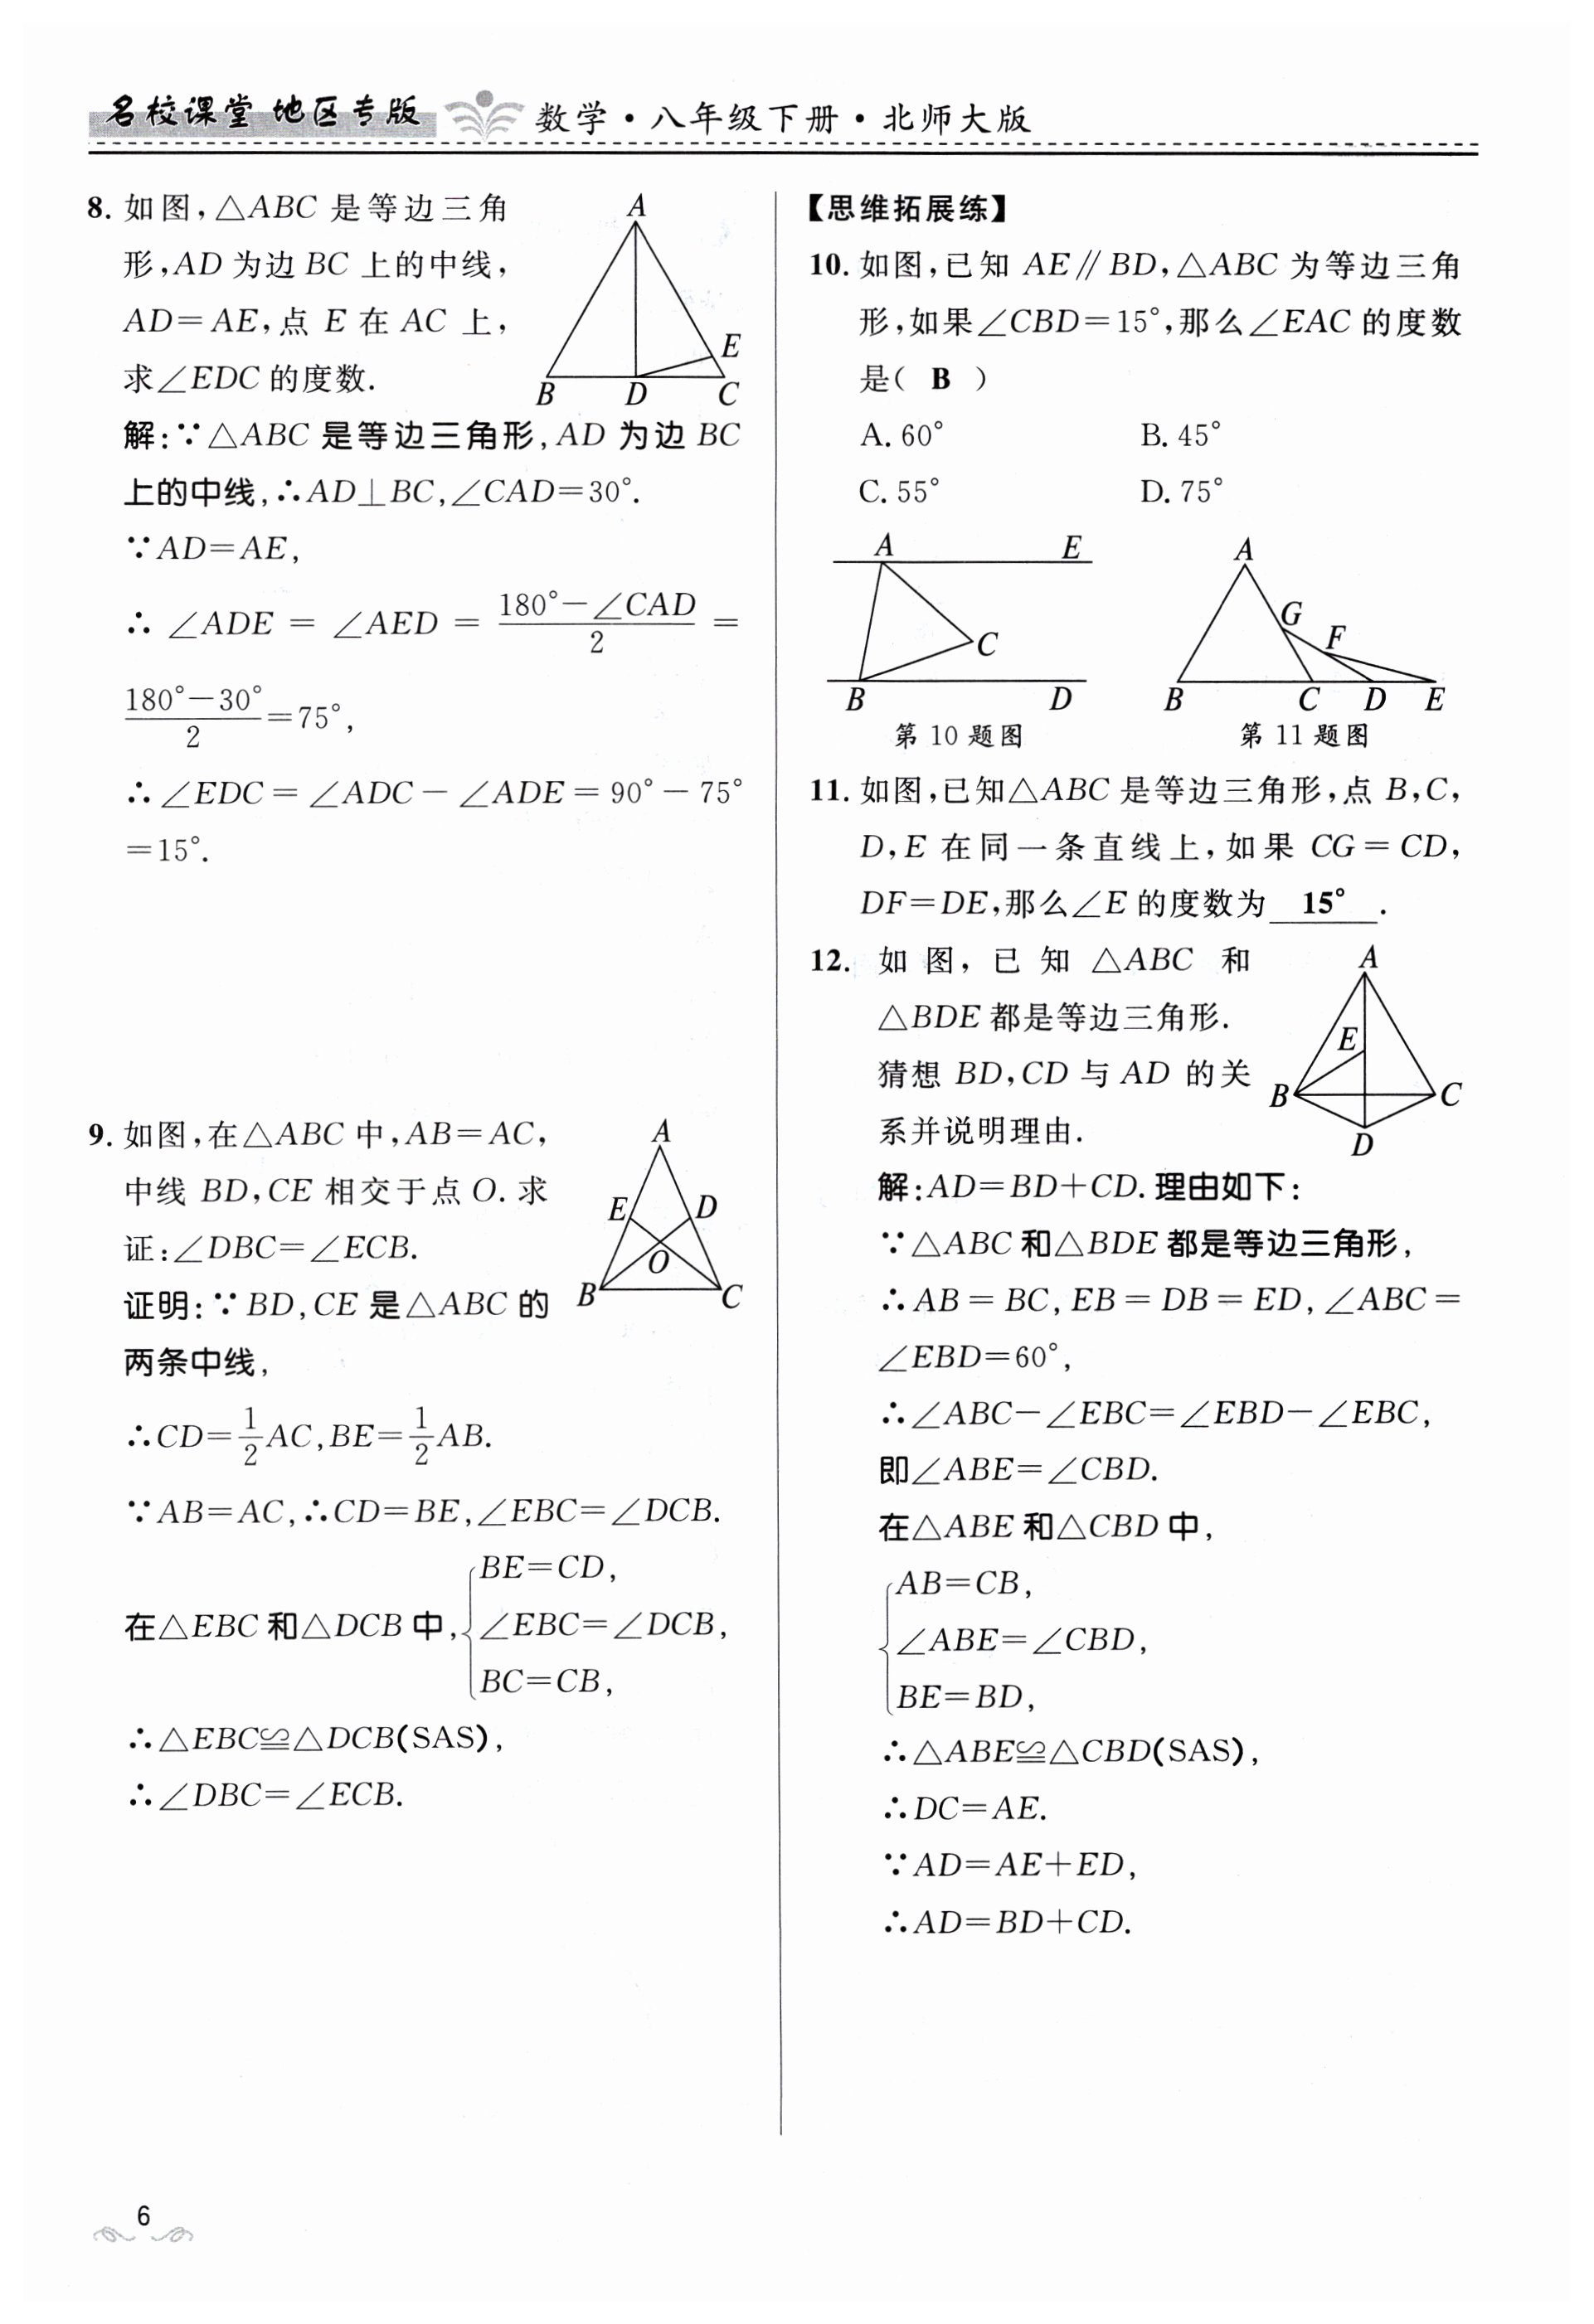 名校课堂 地区专版 数学·八年级下册·北师大版
8. 如图,△ABC 是等边三角
形,AD 为边 BC 上的中线,
AD=AE,点 E 在 AC 上,
求∠EDC 的度数.
A
E
B D C
解:∵△ABC 是等边三角形,AD 为边 BC
上的中线,∴AD⊥BC,∠CAD=30°.
∵AD=AE,
∴ ∠ADE = ∠AED = \frac{180°-∠CAD}{2} =
\frac{180°-30°}{2}=75°,
∴∠EDC=∠ADC-∠ADE=90°-75°
=15°.
9. 如图,在△ABC 中,AB=AC,
中线 BD,CE 相交于点 O. 求
证:∠DBC=∠ECB.
A
E D
O
B C
证明:∵BD,CE 是△ABC 的
两条中线,
∴CD=\frac{1}{2}AC,BE=\frac{1}{2}AB.
∵AB=AC,∴CD=BE,∠EBC=∠DCB.
BE=CD,
在△EBC 和△DCB 中,{∠EBC=∠DCB,
BC=CB,
∴△EBC≌△DCB(SAS),
∴∠DBC=∠ECB.
6
【思维拓展练】
10. 如图,已知 AE∥BD,△ABC 为等边三角
形,如果∠CBD=15°,那么∠EAC 的度数
是( B )
A. 60° B. 45°
C. 55° D. 75°
A E
C
B D
第 10 题图
A
G
F
B C D E
第 11 题图
11. 如图,已知△ABC 是等边三角形,点 B,C,
D,E 在同一条直线上,如果 CG=CD,
DF=DE,那么∠E 的度数为 15° .
12. 如图,已知 △ABC 和
△BDE 都是等边三角形.
猜想 BD,CD 与 AD 的关
系并说明理由.
A
E
B C
D
解:AD=BD+CD. 理由如下:
∵△ABC 和△BDE 都是等边三角形,
∴AB=BC,EB=DB=ED,∠ABC=
∠EBD=60°,
∴∠ABC-∠EBC=∠EBD-∠EBC,
即∠ABE=∠CBD.
在△ABE 和△CBD 中,
{AB=CB,
∠ABE=∠CBD,
BE=BD,
∴△ABE≌△CBD(SAS),
∴DC=AE.
∵AD=AE+ED,
∴AD=BD+CD.